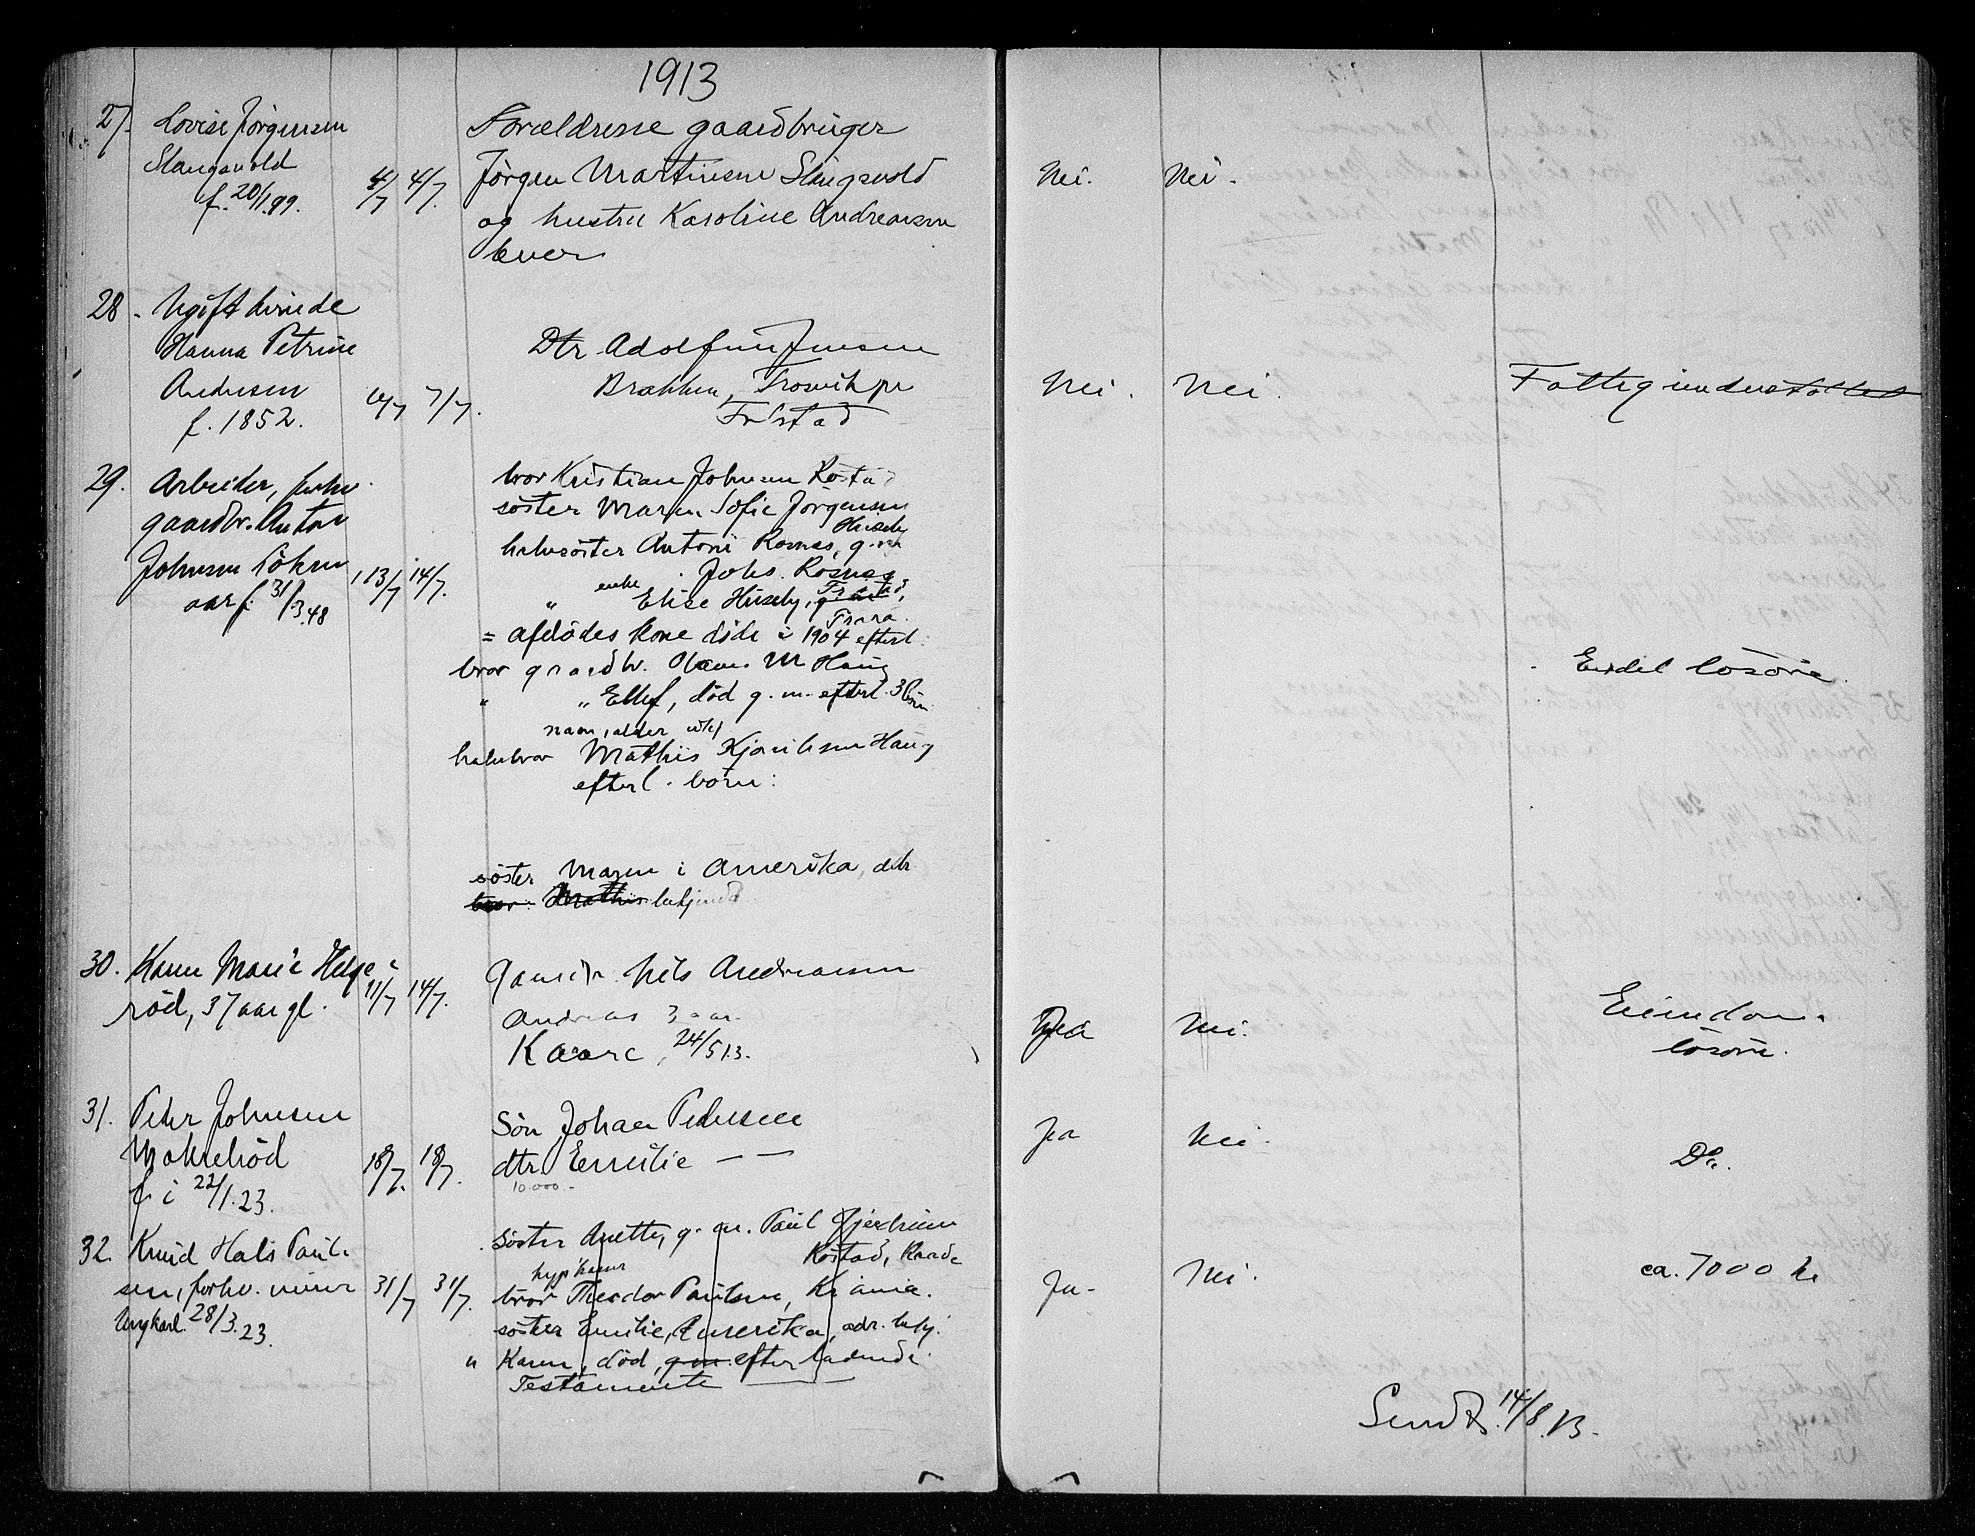 1913
27. Lovise Jørgensen
Slangsvold
f. 20/1.99.
4/7 4/7.
Forældrene gaardbruger
Jørgen Martinsen Slangsvold
og hustru Karoline Andreassen
lever
Nei. Nei.
28. Ugift kvinde
Hanna Petrine
Andersen
f. 1852.
7/7.
Dtr. Adolfine Jensen
Brakken, Trosvik pr
Fr.stad
Nei. Nei.
Fattigunderstøttet
29. Arbeider, forhv.
gaardbr. Anton
Johnsen
f. 31/3.48
13/7 14/7.
bror Kristian Johnsen Rostad
søster Maren Sofie Jørgensen
Huseby
halvsøster Antoni Rosnes, g. m
Johs. Rosnes
enke Fr.stad,
" Elise Huseby,
= afdødes kone døde i 1904 efterl.
bror gaardbr. Hans M Haug
" " Ellef, død g. m. efterl. 3 børn
navn, alder ubkj
halvbror Mathis Haug
efterl. børn:
søster Maren i Amerika,
bror Mathis bekjendt
Endel løsøre.
30. Karen Marie Helge
rød, 37 aar gl.
11/7 14/7.
Nils Andreassen
Andreas 3 aar.
Kaare, 24/5 13.
Ja Nei.
Eiendom.
løsøre.
31. Peter Johnsen
f i 22/1.23.
18/7. 18/7.
Søn Johan Pedersen
dtr. Emilie — —
10.000.-
Ja Nei.
Do.
32. Knud Hals Paul-
sen, forhv. murer
Ungkarl 28/3.23.
31/7 31/7.
søster Anette, g. m. Paul
Rostad, Raade
bror Theodor Paulsen, Kr.ania.
søster Emilie, Amerika, adr. ubkj.
" Karen, død, g m efterladende
Testamente —
Ja- Nei.
ca. 7000 kr
Sendt 14/8.13.